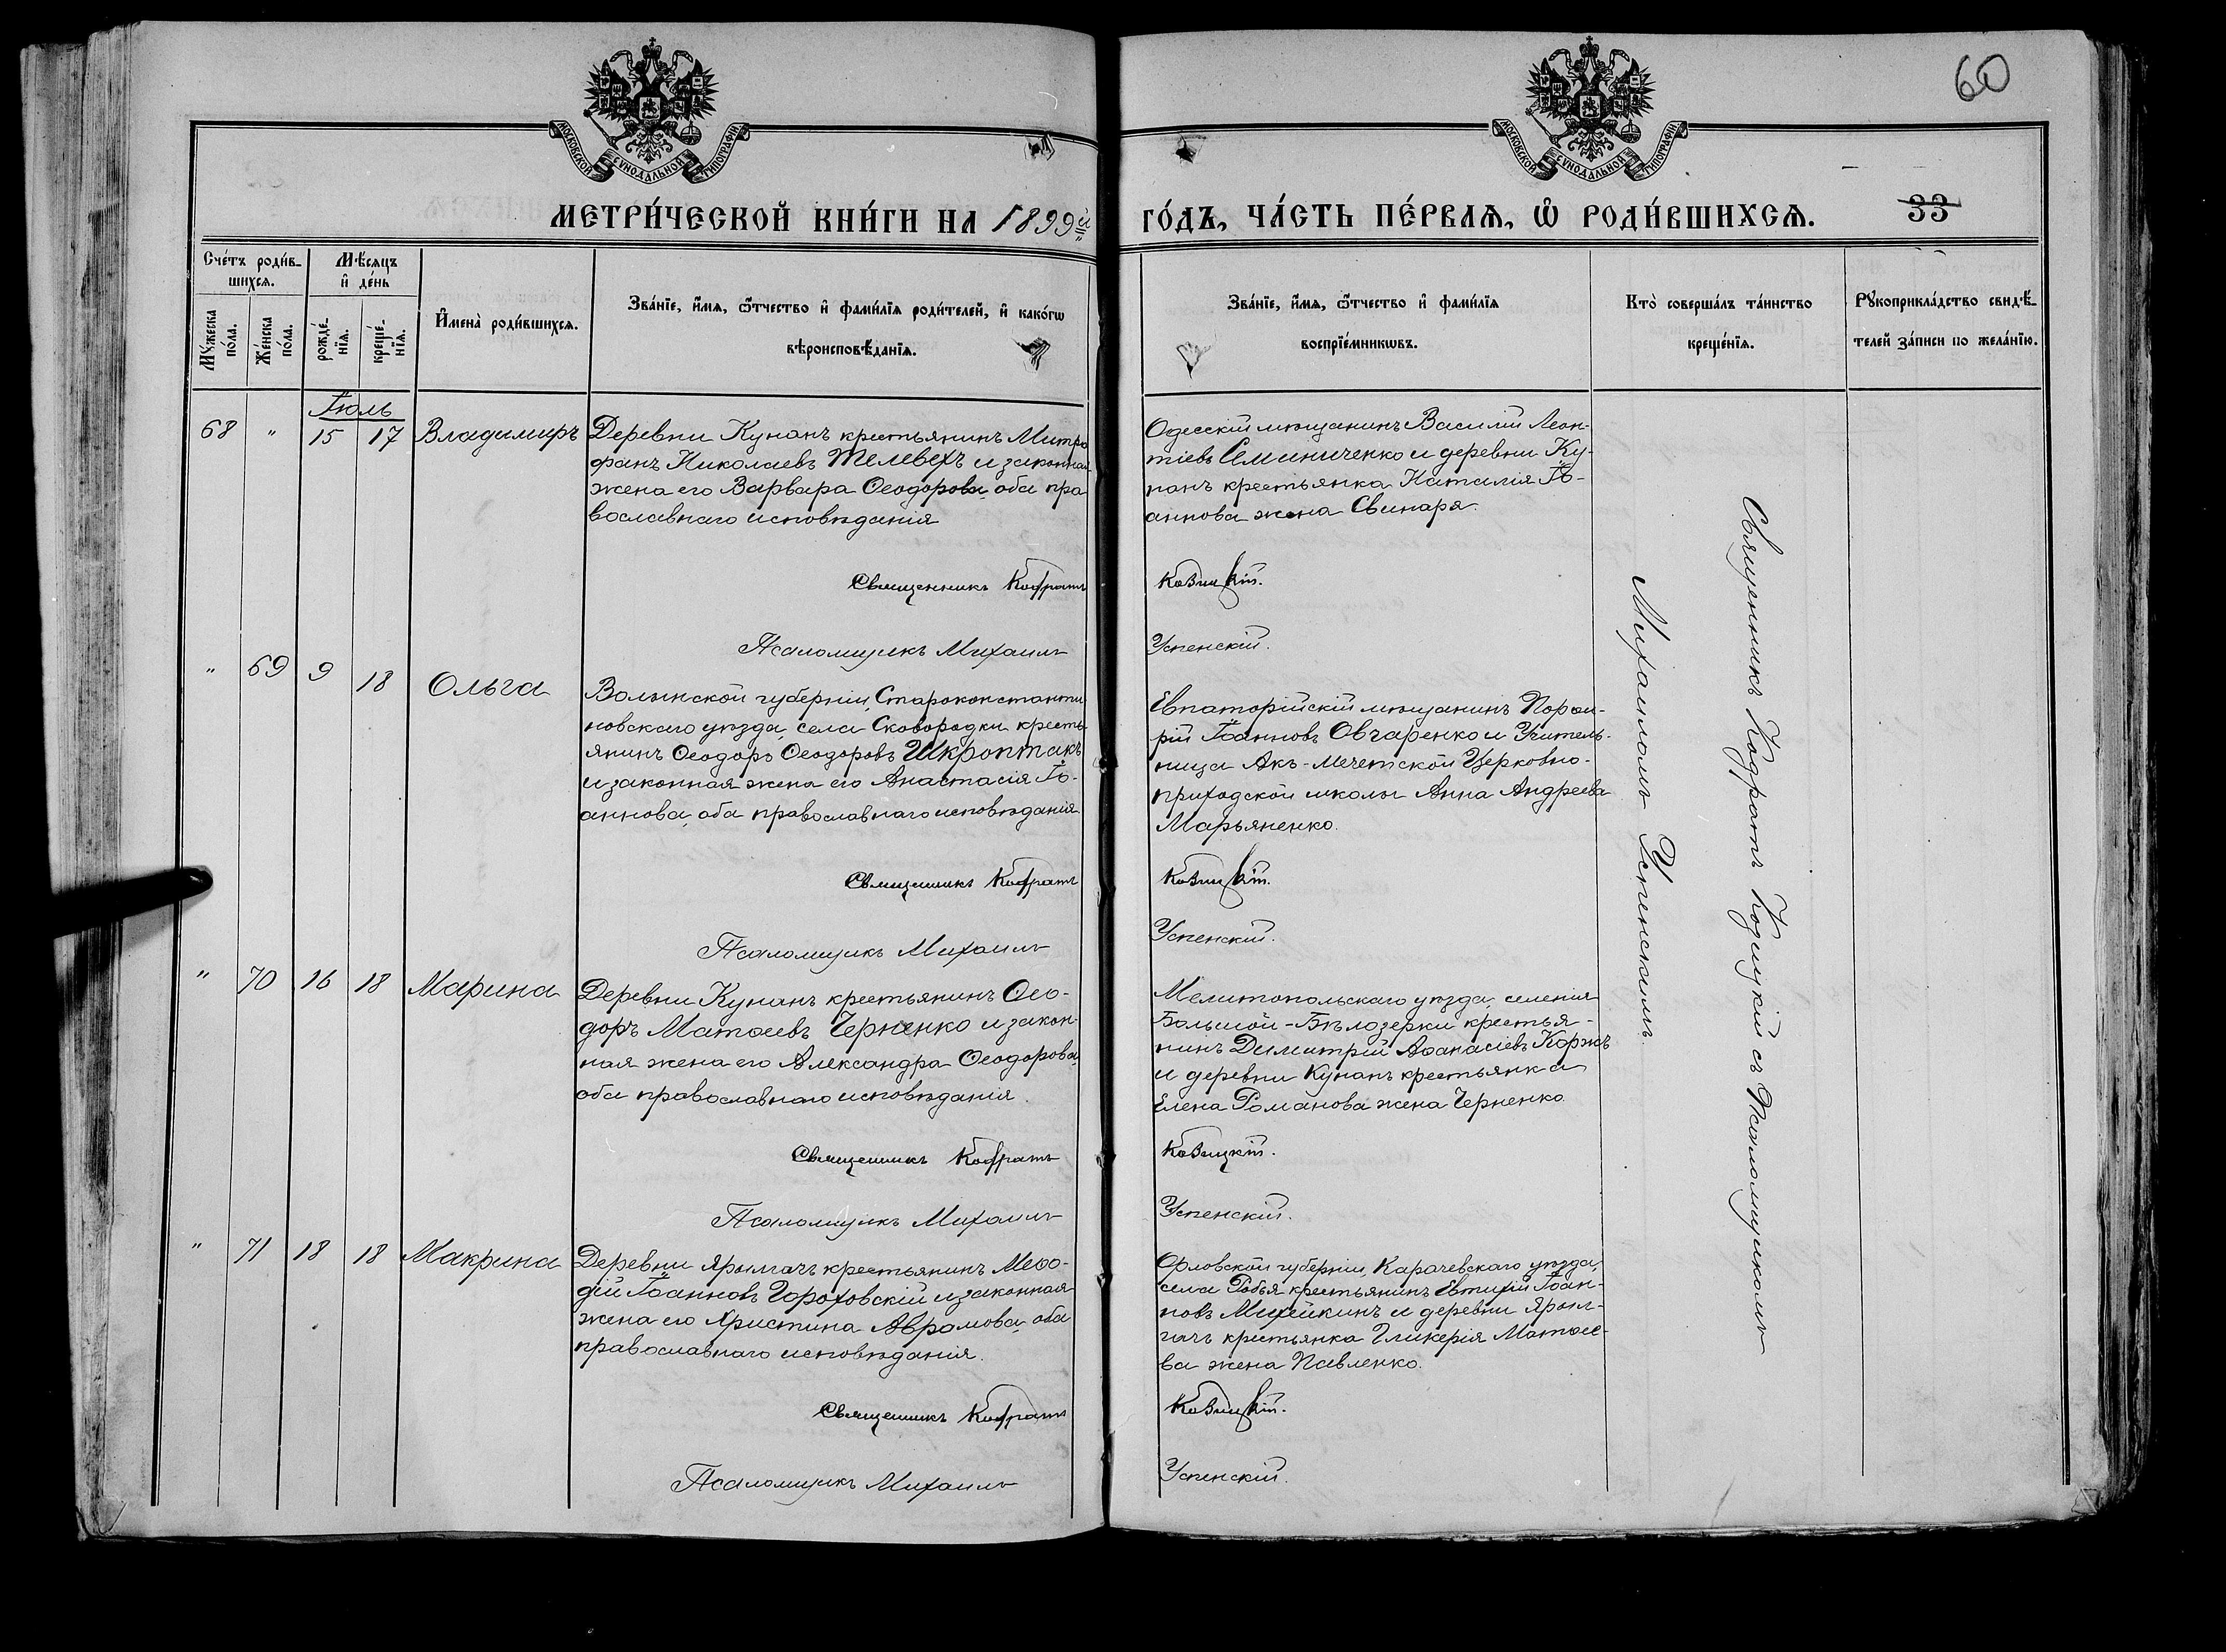 60
МОСКОВСКОЙ СѴНОДАЛЬНОЙ ТИПОГРАФІИ
МОСКОВСКОЙ СѴНОДАЛЬНОЙ ТИПОГРАФІИ
МЕТРИ́ЧЕСКОЙ КНИ́ГИ НА 1899й
ГО́ДЪ, ЧА́СТЬ ПЕ́РВАѦ, Ѡ РОДИ́ВШИХСѦ. 33
Сче́тъ роди́в-
шихсѧ.
Мꙋ́жеска
по́ла.
Же́нска
по́ла.
Мѣ́сѧцъ
и҆ де́нь
рожде́-
нїѧ.
креще́-
нїѧ.
И҆мена̀ роди́вшихсѧ.
Зва́нїе, и҆́мѧ, ѻ҆́тчество и҆ фами́лїѧ роди́телей, и҆ како́гѡ
вѣроисповѣ́данїѧ.
Зва́нїе, и҆́мѧ, ѻ҆́тчество и҆ фами́лїѧ
воспрїе́мникѡвъ.
Кто̀ соверша́лъ та́инство
креще́нїѧ.
Рꙋкоприкла́дство свидѣ́-
телей за́писи по жела́нїю.
Іюль
68 " 15 17 Владимиръ
Деревни Кунанъ крестьянинъ Митро
фанъ Николаевъ Телевехъ и законная
жена его Варвара Ѳеодорова, оба пра
вославнаго исповѣданія
Священникъ Кодратъ
Псаломщикъ Михаилъ
Одесскій мѣщанинъ Василій Леон-
тіевъ Семиниченко и деревни Ку-
нанъ крестьянка Наталія Іо-
аннова жена Свинаря.
Козицкій.
Успенскій.
" 69 9 18 Ольга
Волынской губерніи, Староконстанти
новскаго уѣзда, села Сковородки кресть
янинъ Ѳеодоръ Ѳеодоровъ Шкроптакъ
и законная жена его Анастасія Іо-
аннова, оба православнаго исповѣданія
Священникъ Кодратъ
Псаломщикъ Михаилъ
Евпаторійскій мѣщанинъ Порфи-
рій Іоанновъ Овчаренко и Учитель-
ница Акъ-Мечетской Церковно-
приходской школы Анна Андреева
Марьяненко.
Козицкій.
Успенскій.
" 70 16 18 Марина
Деревни Кунанъ крестьянинъ Ѳео-
доръ Матѳеевъ Черненко и закон-
ная жена его Александра Ѳеодорова,
оба православнаго исповѣданія.
Священникъ Кодратъ
Псаломщикъ Михаилъ
Мелитопольскаго уѣзда, селенія
Большой-Бѣлозерки крестья-
нинъ Димитрій Аѳанасіевъ Коржъ
и деревни Кунанъ крестьянка
Елена Романова жена Черненко
Козицкій.
Успенскій.
" 71 18 18 Макрина
Деревни Ярылгачъ крестьянинъ Меѳо-
дій Іоанновъ Гороховскій и законная
жена его Христина Аврамова, оба
православнаго исповѣданія.
Священникъ Кодратъ
Псаломщикъ Михаилъ
Орловской губерніи, Карачевскаго уѣзда,
села Робья крестьянинъ Евтихій Іоан-
новъ Михейкинъ и деревни Ярыл-
гачъ крестьянка Гликерія Матѳее-
ва жена Павленко.
Козицкій.
Успенскій.
Священникъ Кодратъ Козицкій съ Псаломщикомъ
Михаиломъ Успенскимъ